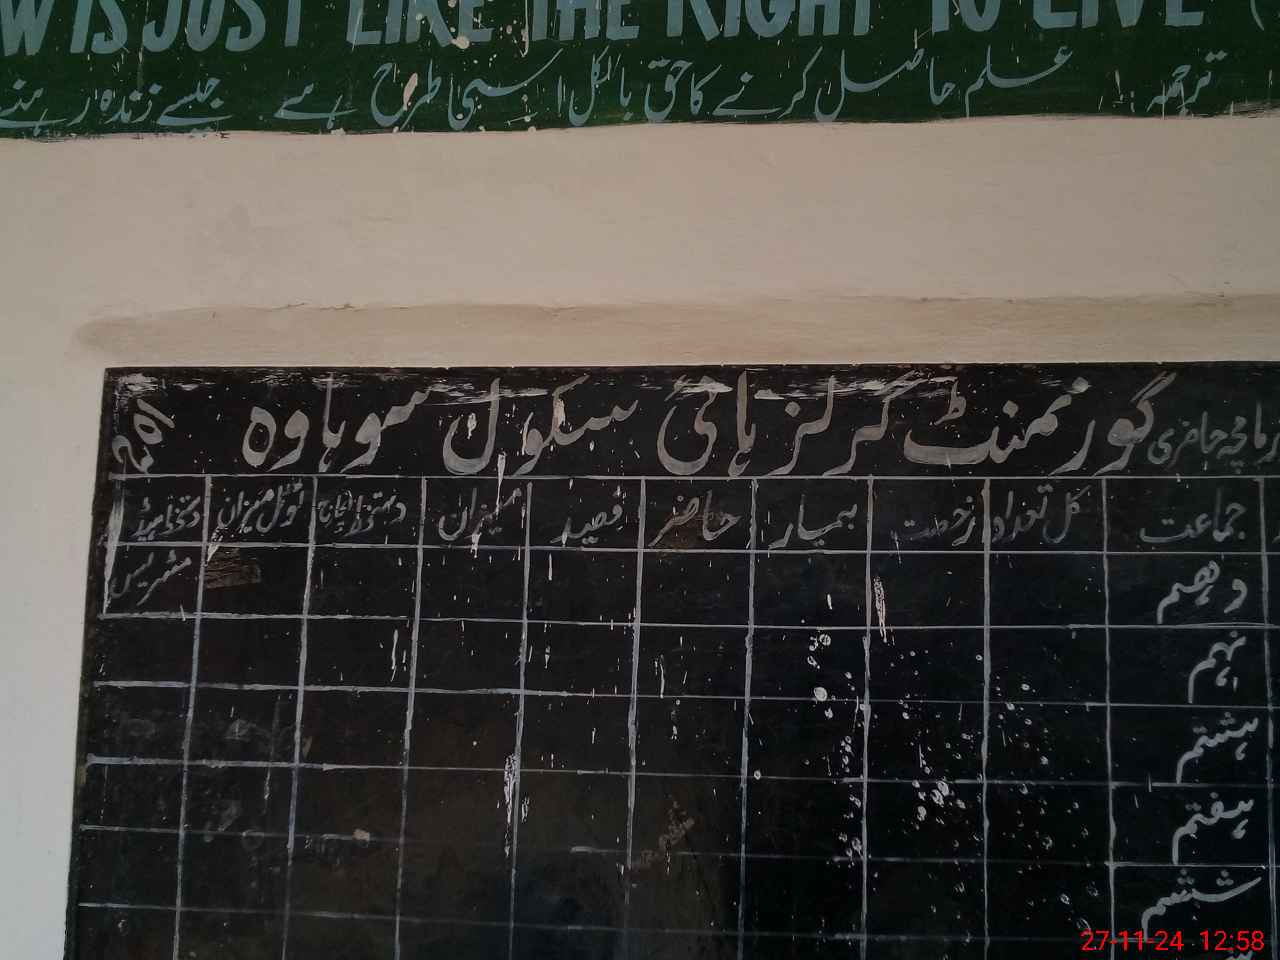 W IS JUST LIKE THE RIGHT TO LIVE (
ترجمہ: علم حاصل کرنے کا حق بالکل اسی طرح ہے جیسے زندہ رہنے
چہ حاضری گورنمنٹ گرلز ہائی سکول سوہاوہ
جماعت کل تعداد رخصت بیمار حاضر فیصد میزان دستخط انچارج ٹوٹل میزان دستخط ہیڈ
مسٹریس
دہم
نہم
ہشتم
ہفتم
ششم
27-11-24 12:58